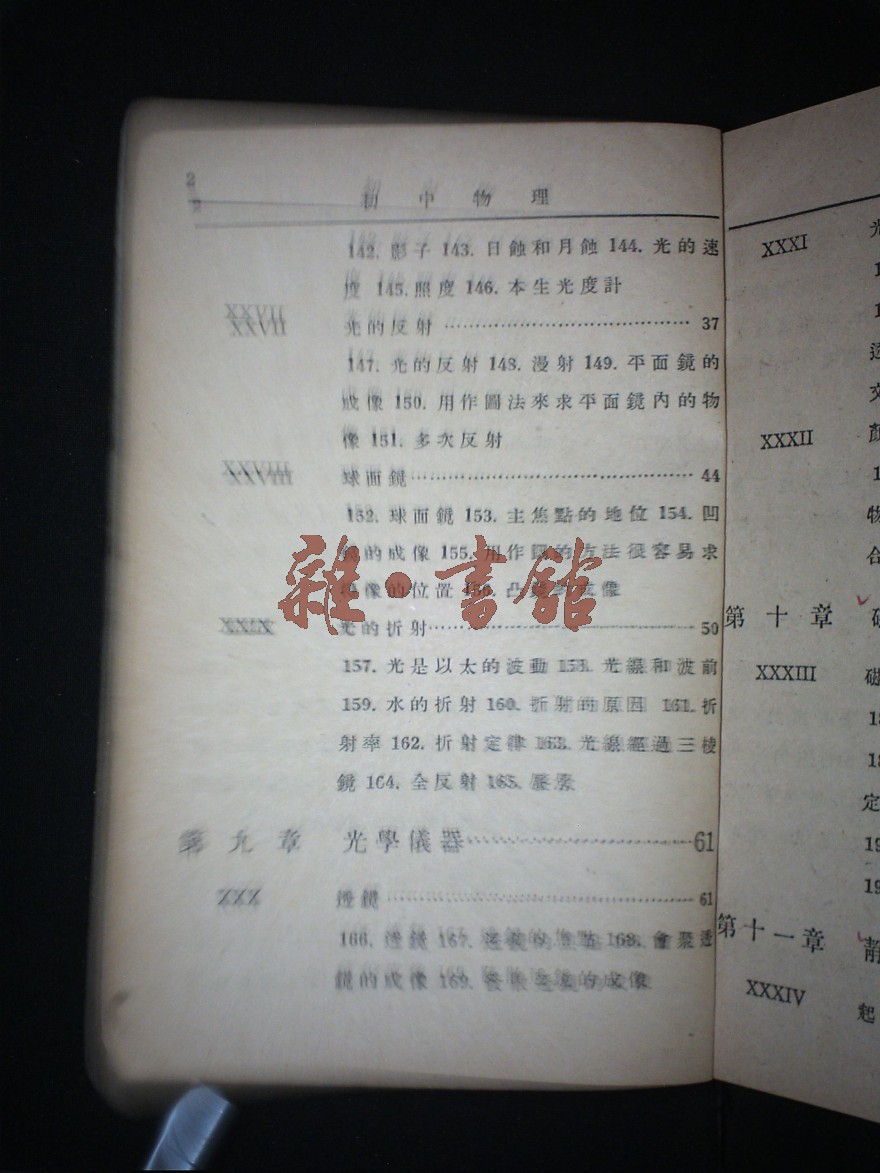 2
初中物理
142. 影子 143. 日蝕和月蝕 144. 光的速
度 145. 照度 146. 本生光度計
XXVII 光的反射 37
147. 光的反射 148. 漫射 149. 平面鏡的
成像 150. 用作圖法來求平面鏡內的物
像 151. 多次反射
XXVIII 球面鏡 44
152. 球面鏡 153. 主焦點的地位 154. 凹
的成像 155. 用作圖的方法很容易求
像的位置 156. 凸 成像
XXIX 光的折射 50
157. 光是以太的波動 158. 光線和波前
159. 水的折射 160. 折射的原因 161. 折
射率 162. 折射定律 163. 光線經過三棱
鏡 164. 全反射 165.
第九章 光學儀器 61
XXX 透鏡 61
166. 透鏡 167. 透鏡的焦點 168. 會聚透
鏡的成像 169. 發散透鏡的成像
雜·書館
XXXI 光
透
交
XXXII 顏
物
合
第十章 磁
XXXIII 磁
定
第十一章 靜
XXXIV 起